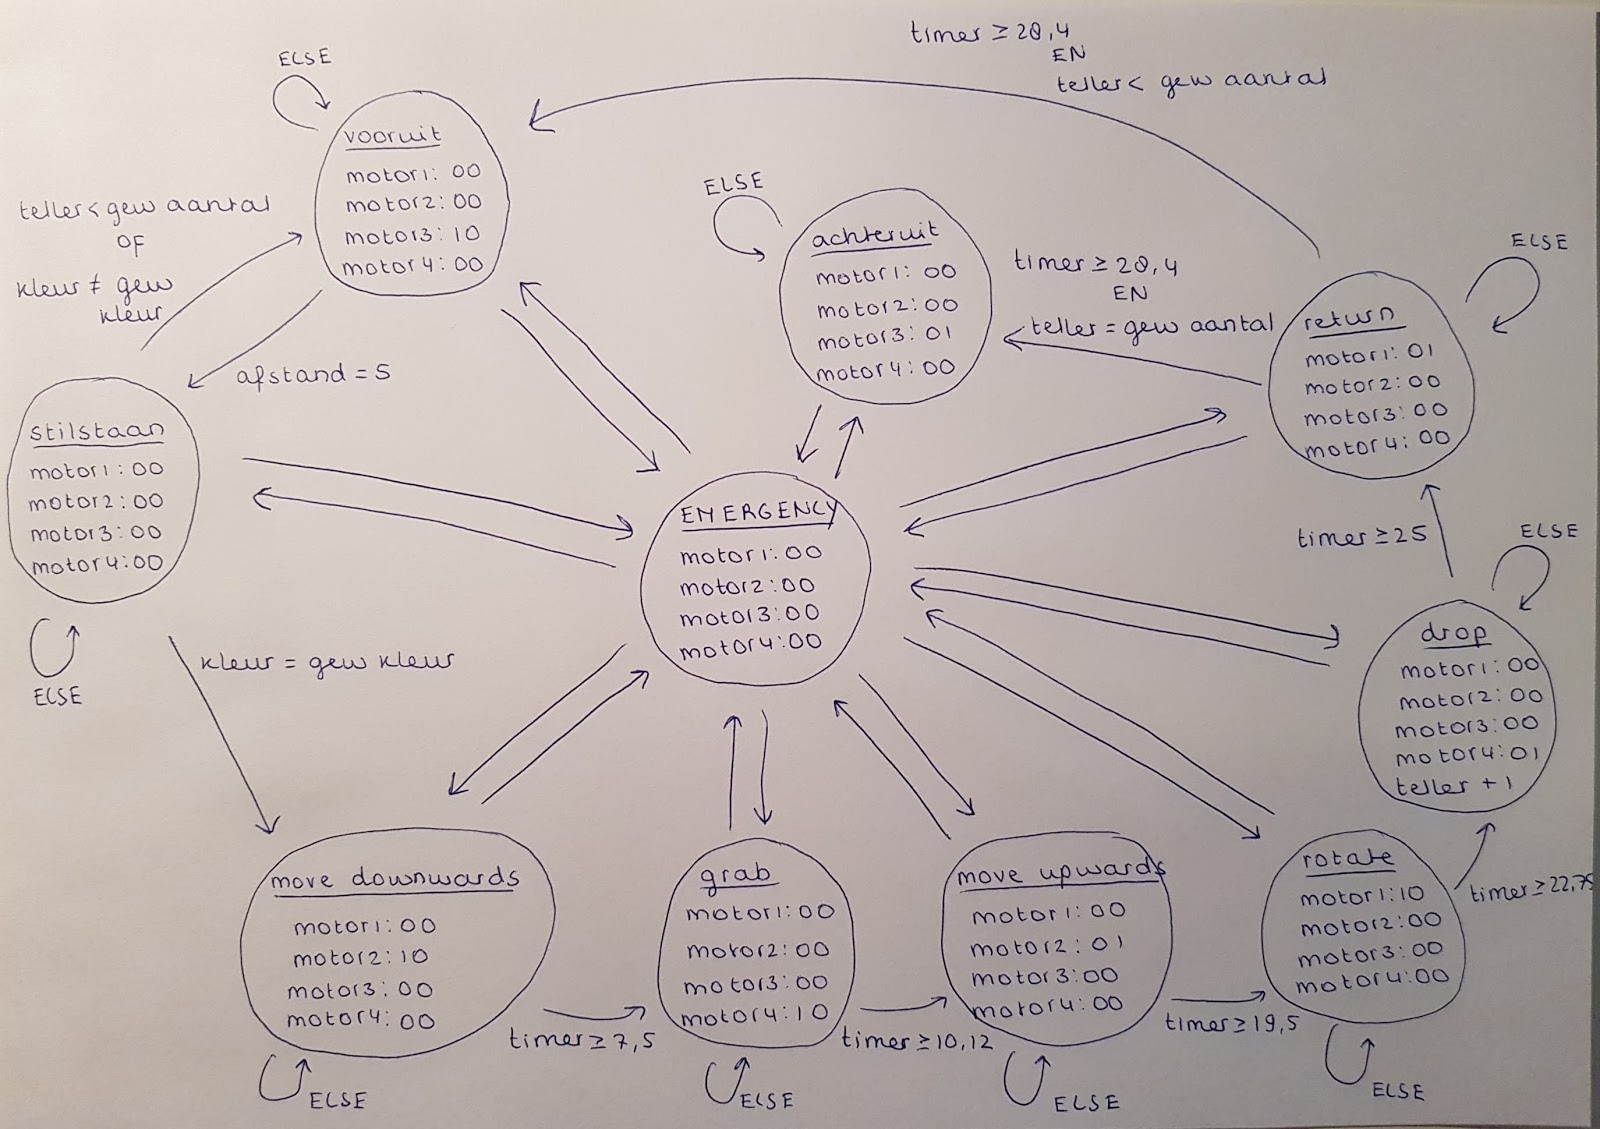 timer ≥ 28,4
EN
teller < gew aantal
ELSE
vooruit
motor1: 00
motor2: 00
motor3: 10
motor4: 00
teller < gew aantal
OF
kleur ≠ gew
kleur
afstand = 5
ELSE
achteruit
motor1: 00
motor2: 00
motor3: 01
motor4: 00
timer ≥ 28,4
EN
teller = gew aantal
ELSE
return
motor1: 01
motor2: 00
motor3: 00
motor4: 00
stilstaan
motor1: 00
motor2: 00
motor3: 00
motor4: 00
ELSE
kleur = gew kleur
EMERGENCY
motor1: 00
motor2: 00
motor3: 00
motor4: 00
timer ≥ 25
ELSE
drop
motor1: 00
motor2: 00
motor3: 00
motor4: 01
teller + 1
move downwards
motor1: 00
motor2: 10
motor3: 00
motor4: 00
ELSE
timer ≥ 7,5
grab
motor1: 00
motor2: 00
motor3: 00
motor4: 10
ELSE
timer ≥ 10,12
move upwards
motor1: 00
motor2: 01
motor3: 00
motor4: 00
ELSE
timer ≥ 19,5
rotate
motor1: 10
motor2: 00
motor3: 00
motor4: 00
ELSE
timer ≥ 22,75